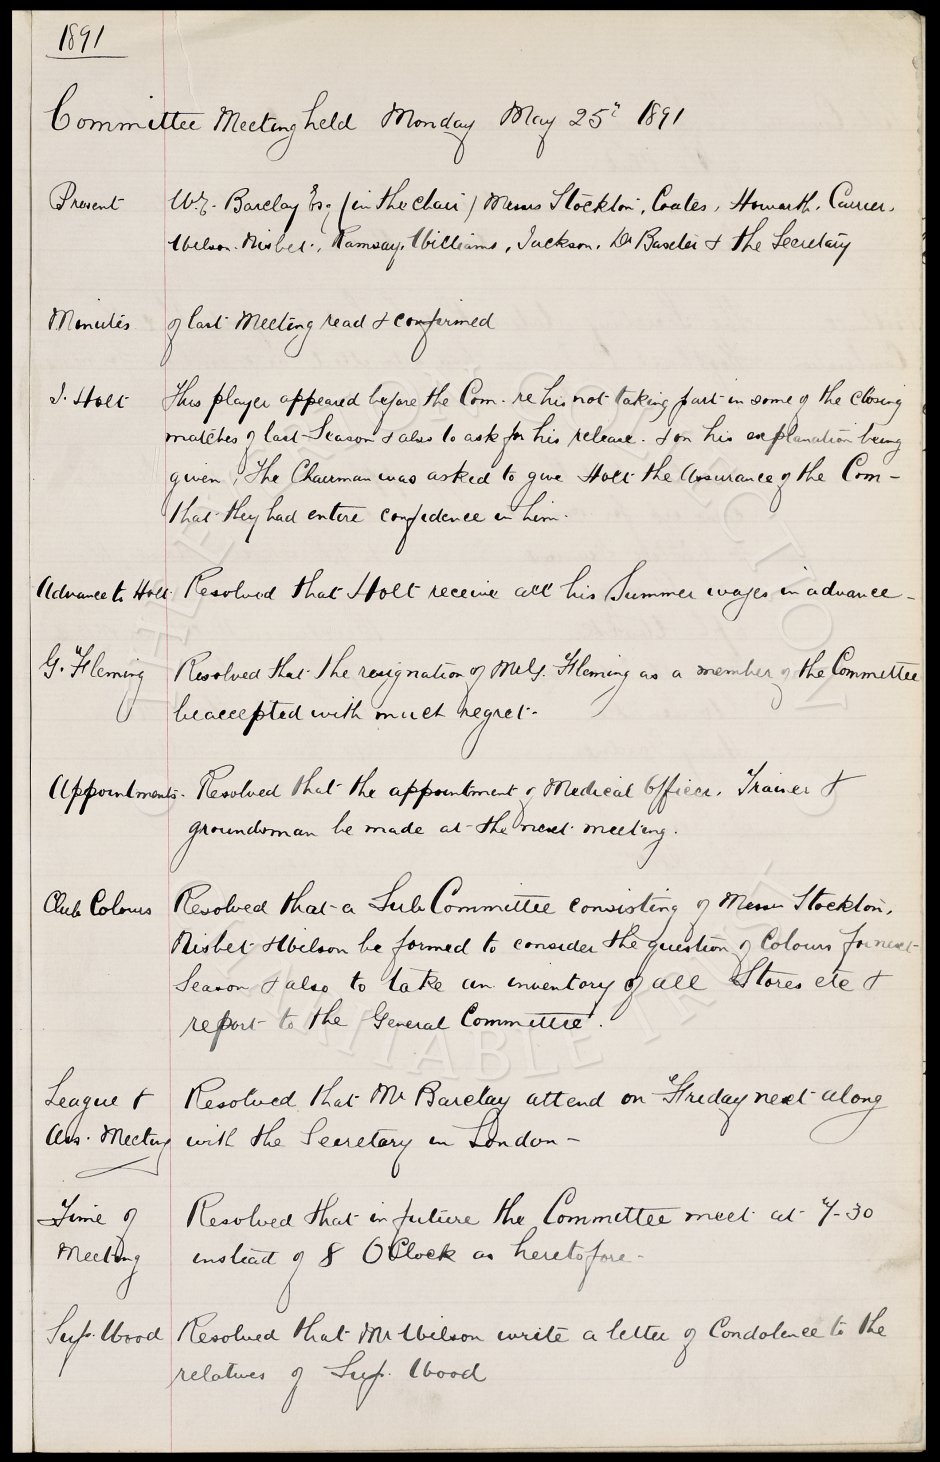 1891
Committee Meeting held Monday May 25" 1891
Present W.E. Barclay Esq (in the chair) Messrs Stockton, Coates, Howarth, Currier,
Wilson. Nisbet., Ramsay, Williams, Jackson, Dr Baxter & the Secretary
Minutes of last Meeting read & confirmed
J. Holt This player appeared before the Com. re his not taking part in some of the closing
matches of last Season & also to ask for his release. & on his explanation being
given, The Chairman was asked to give Holt the Assurance of the Com-
that they had entire confidence in him.
Advance to Holt Resolved that Holt receive all his Summer wages in advance-
G. Fleming Resolved that the resignation of Mr G. Fleming as a member of the Committee
be accepted with much regret-
Appointments. Resolved that the appointment of Medical Officer, Trainer &
groundsman be made at the next meeting.
Club Colours Resolved that a Sub Committee consisting of Messrs Stockton,
Nisbet & Wilson be formed to consider the question of Colours for next
Season & also to take an inventory of all Stores etc &
report to the General Committee.
League & Resolved that Mr Barclay attend on Friday next along
Ass. Meeting with the Secretary in London-
Time of Resolved that in future the Committee meet at 7-30
Meeting instead of 8 O'Clock as heretofore-
Sup. Wood Resolved that Mr Wilson write a letter of Condolence to the
relatives of Sup. Wood
THE
COLLECTION
CHARITABLE TRUST